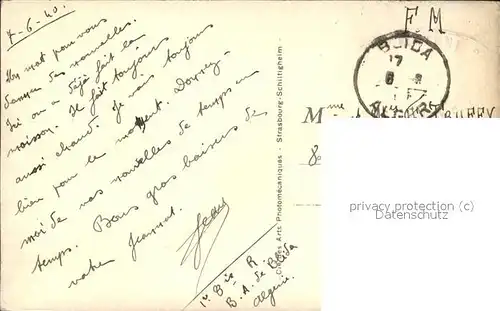 7-6-40.
F.M
Un mot pour vous
donner des nouvelles.
Ici on a déjà fait la
moisson. Il fait toujours
aussi chaud. Je vais toujours
bien pour le moment. Donnez-
moi de vos nouvelles de temps en
temps. Bons gros baisers de
votre
Jean
1er Bis R.
B.A. de Blida
Algérie.
BLIDA
17
6
ALGER
Mme
80
Cliches Arts Photomécaniques - Strasbourg-Schiltigheim -
privacy protection (c) copyright